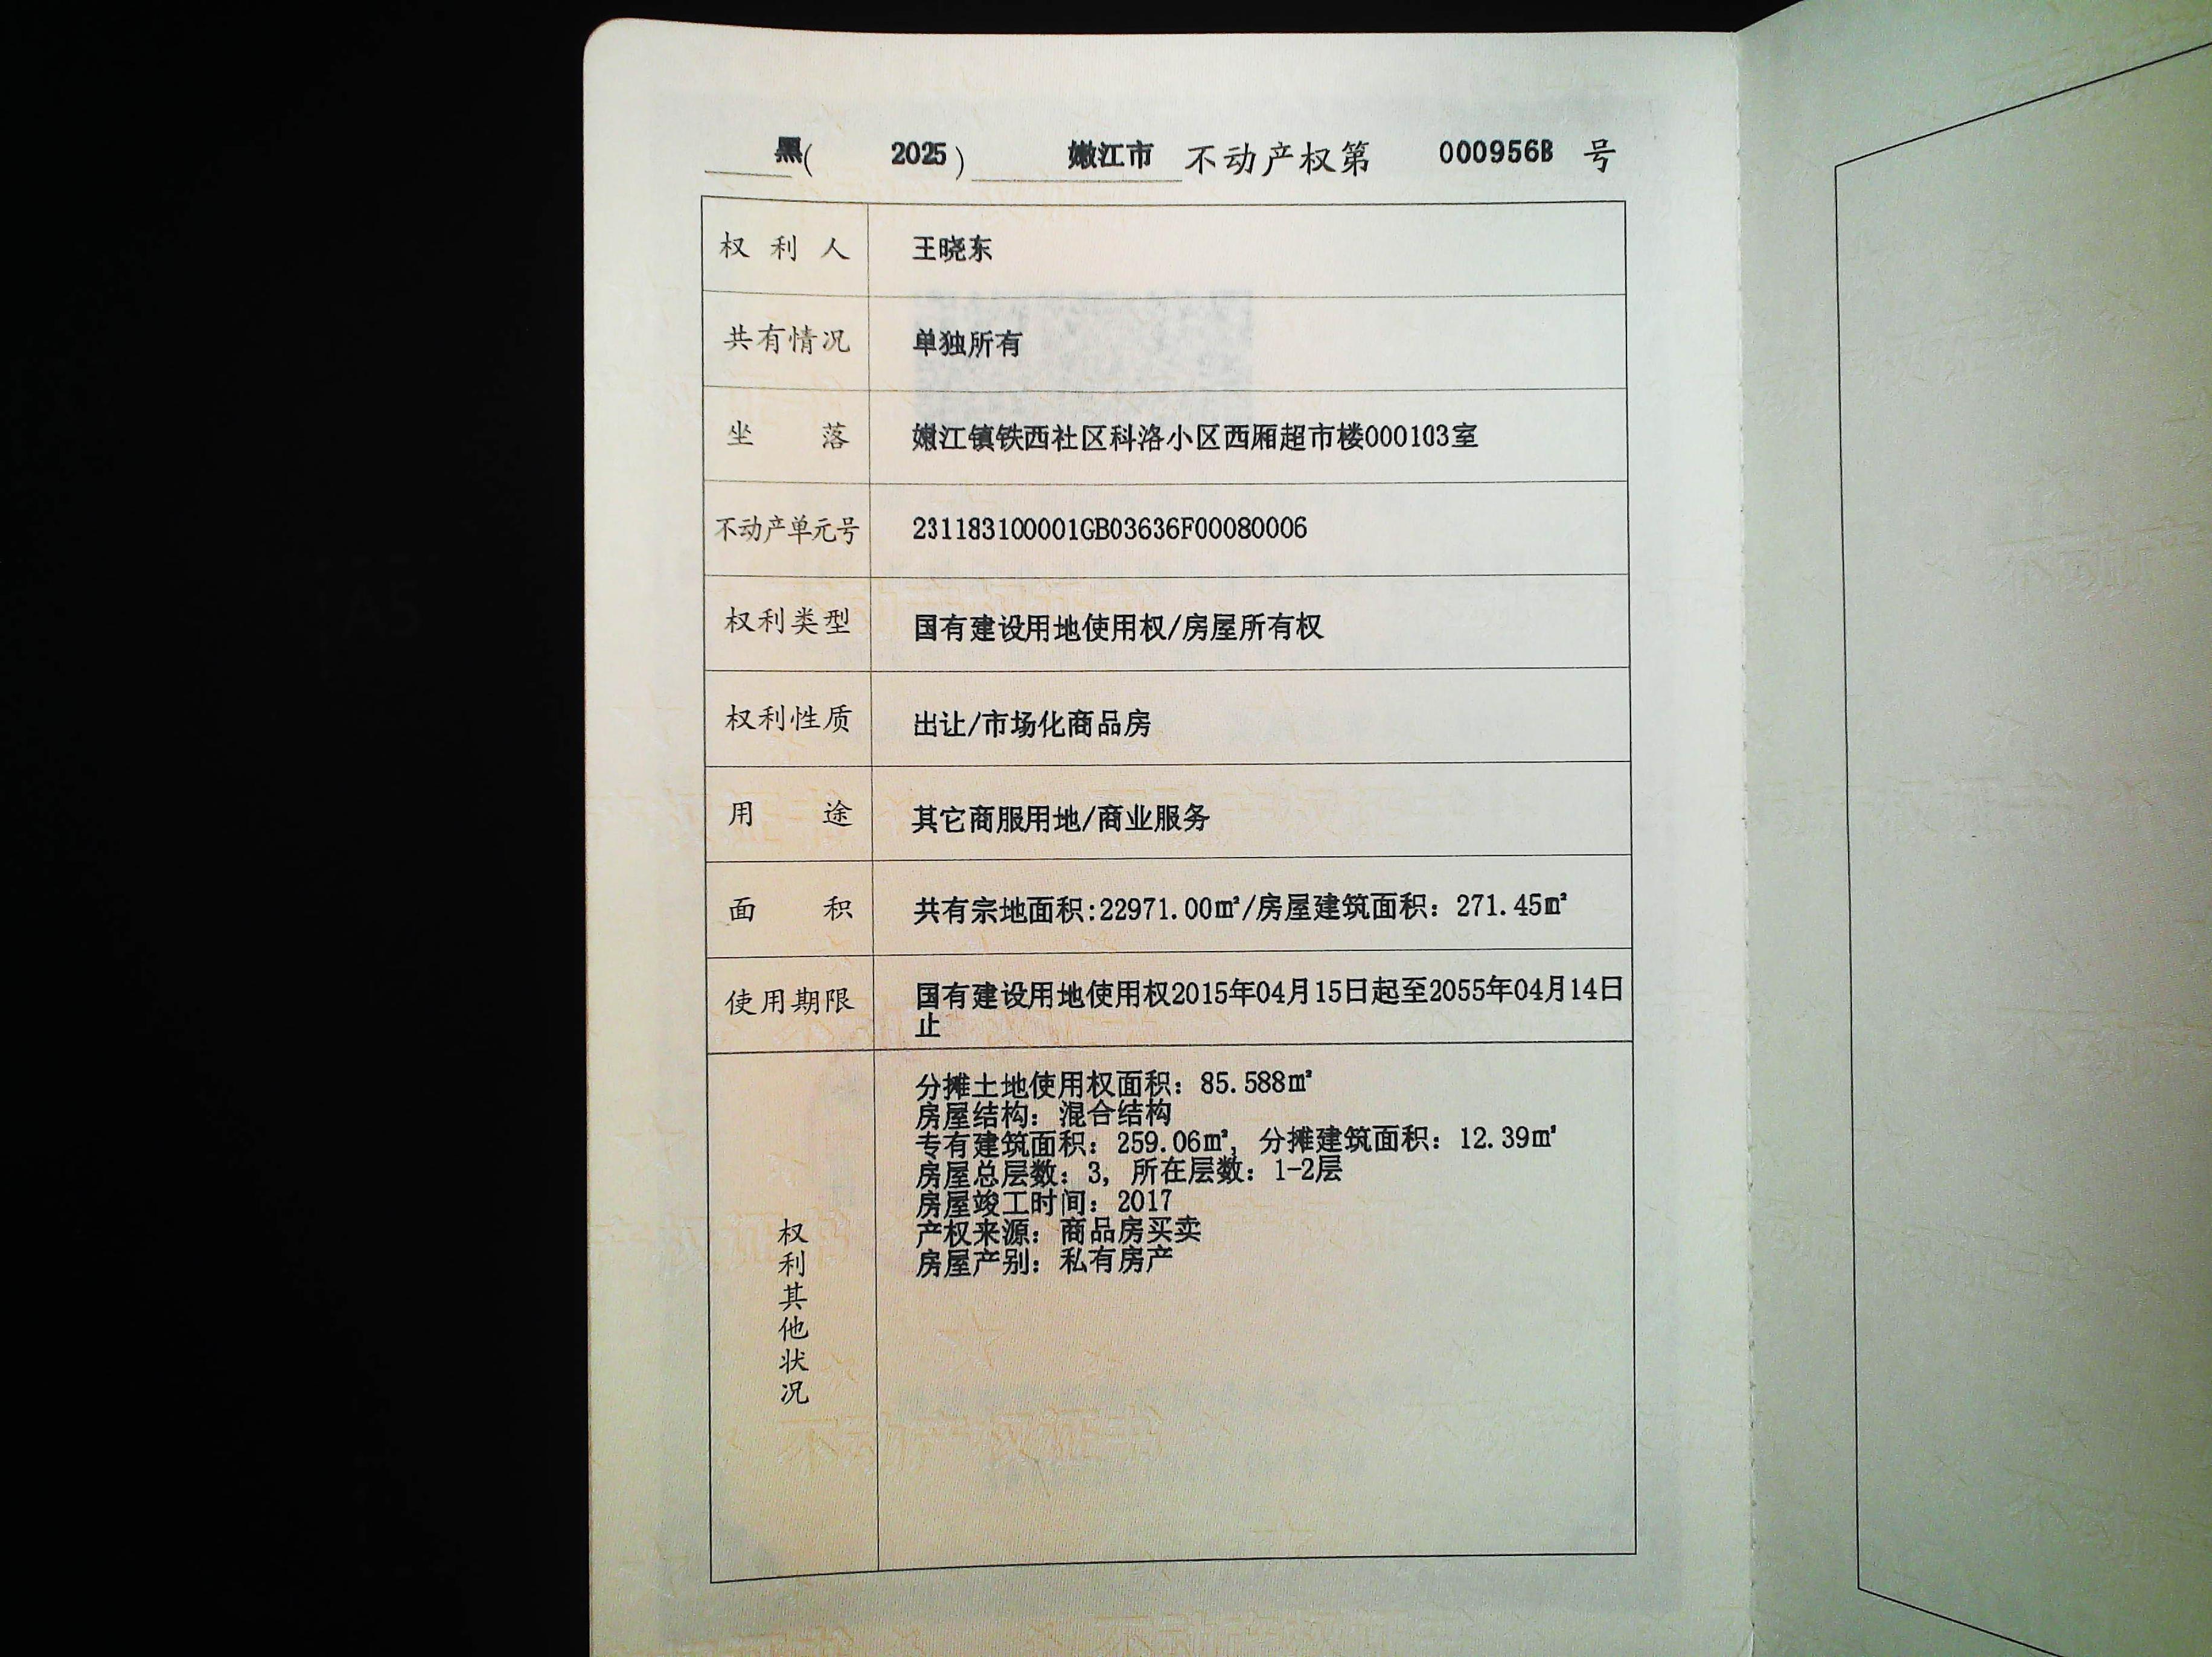 黑( 2025 ) 嫩江市 不动产权第 0009568 号
权利人 王晓东
共有情况 单独所有
坐落 嫩江镇铁西社区科洛小区西厢超市楼000103室
不动产单元号 231183100001GB03636F00080006
权利类型 国有建设用地使用权/房屋所有权
权利性质 出让/市场化商品房
用途 其它商服用地/商业服务
面积 共有宗地面积:22971.00㎡/房屋建筑面积：271.45㎡
使用期限 国有建设用地使用权2015年04月15日起至2055年04月14日
止
权利其他状况
分摊土地使用权面积：85.588㎡
房屋结构：混合结构
专有建筑面积：259.06㎡，分摊建筑面积：12.39㎡
房屋总层数：3，所在层数：1-2层
房屋竣工时间：2017
产权来源：商品房买卖
房屋产别：私有房产